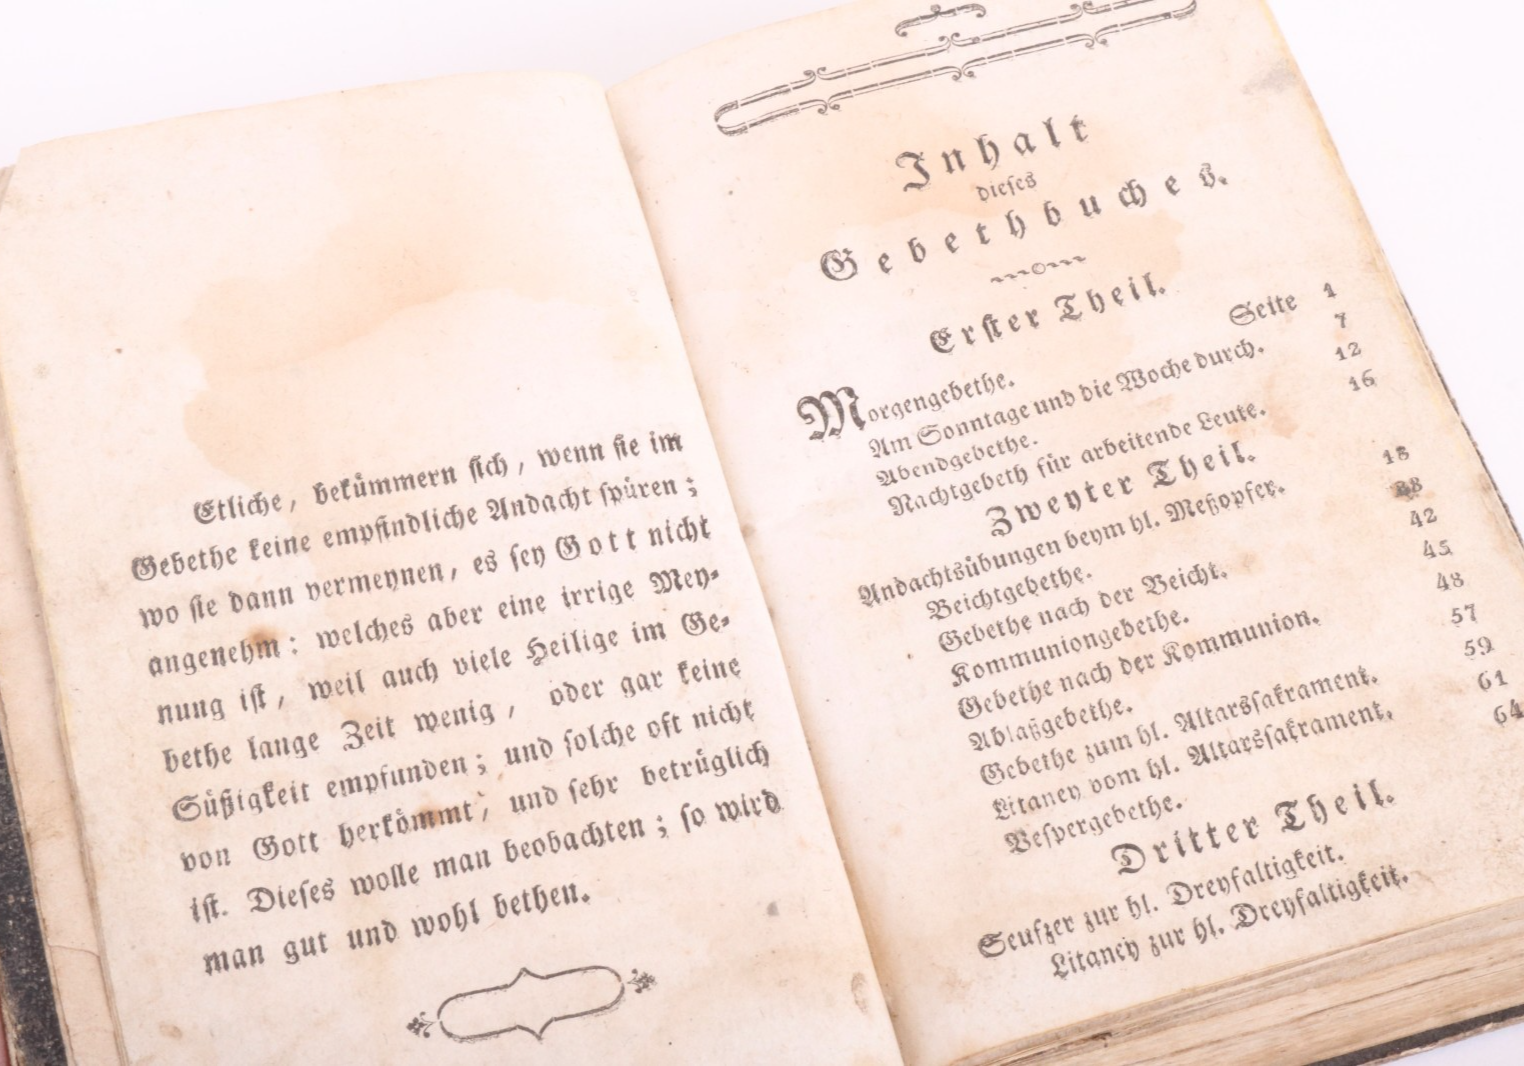 Etliche, bekümmern sich, wenn sie im
Gebethe keine empfindliche Andacht spüren;
wo sie dann vermeynen, es sey Gott nicht
angenehm: welches aber eine irrige Mey-
nung ist, weil auch viele Heilige im Ge-
bethe lange Zeit wenig, oder gar keine
Süßigkeit empfunden; und solche oft nicht
von Gott herkömmt, und sehr betrüglich
ist. Dieses wolle man beobachten; so wird
man gut und wohl bethen.
Inhalt
dieses
Gebethbuches.
Erster Theil.
Morgengebethe. Seite 1
Am Sonntage und die Woche durch. 7
Abendgebethe. 12
Nachtgebeth für arbeitende Leute. 16
Zweyter Theil.
Andachtsübungen beym hl. Meßopfer. 18
Beichtgebethe. 38
Gebethe nach der Beicht. 42
Kommuniongebethe. 45
Gebethe nach der Kommunion. 48
Ablaßgebethe. 57
Gebethe zum hl. Altarssakrament. 59
Litaney vom hl. Altarssakrament. 61
Vespergebethe. 64
Dritter Theil.
Seufzer zur hl. Dreyfaltigkeit.
Litaney zur hl. Dreyfaltigkeit.